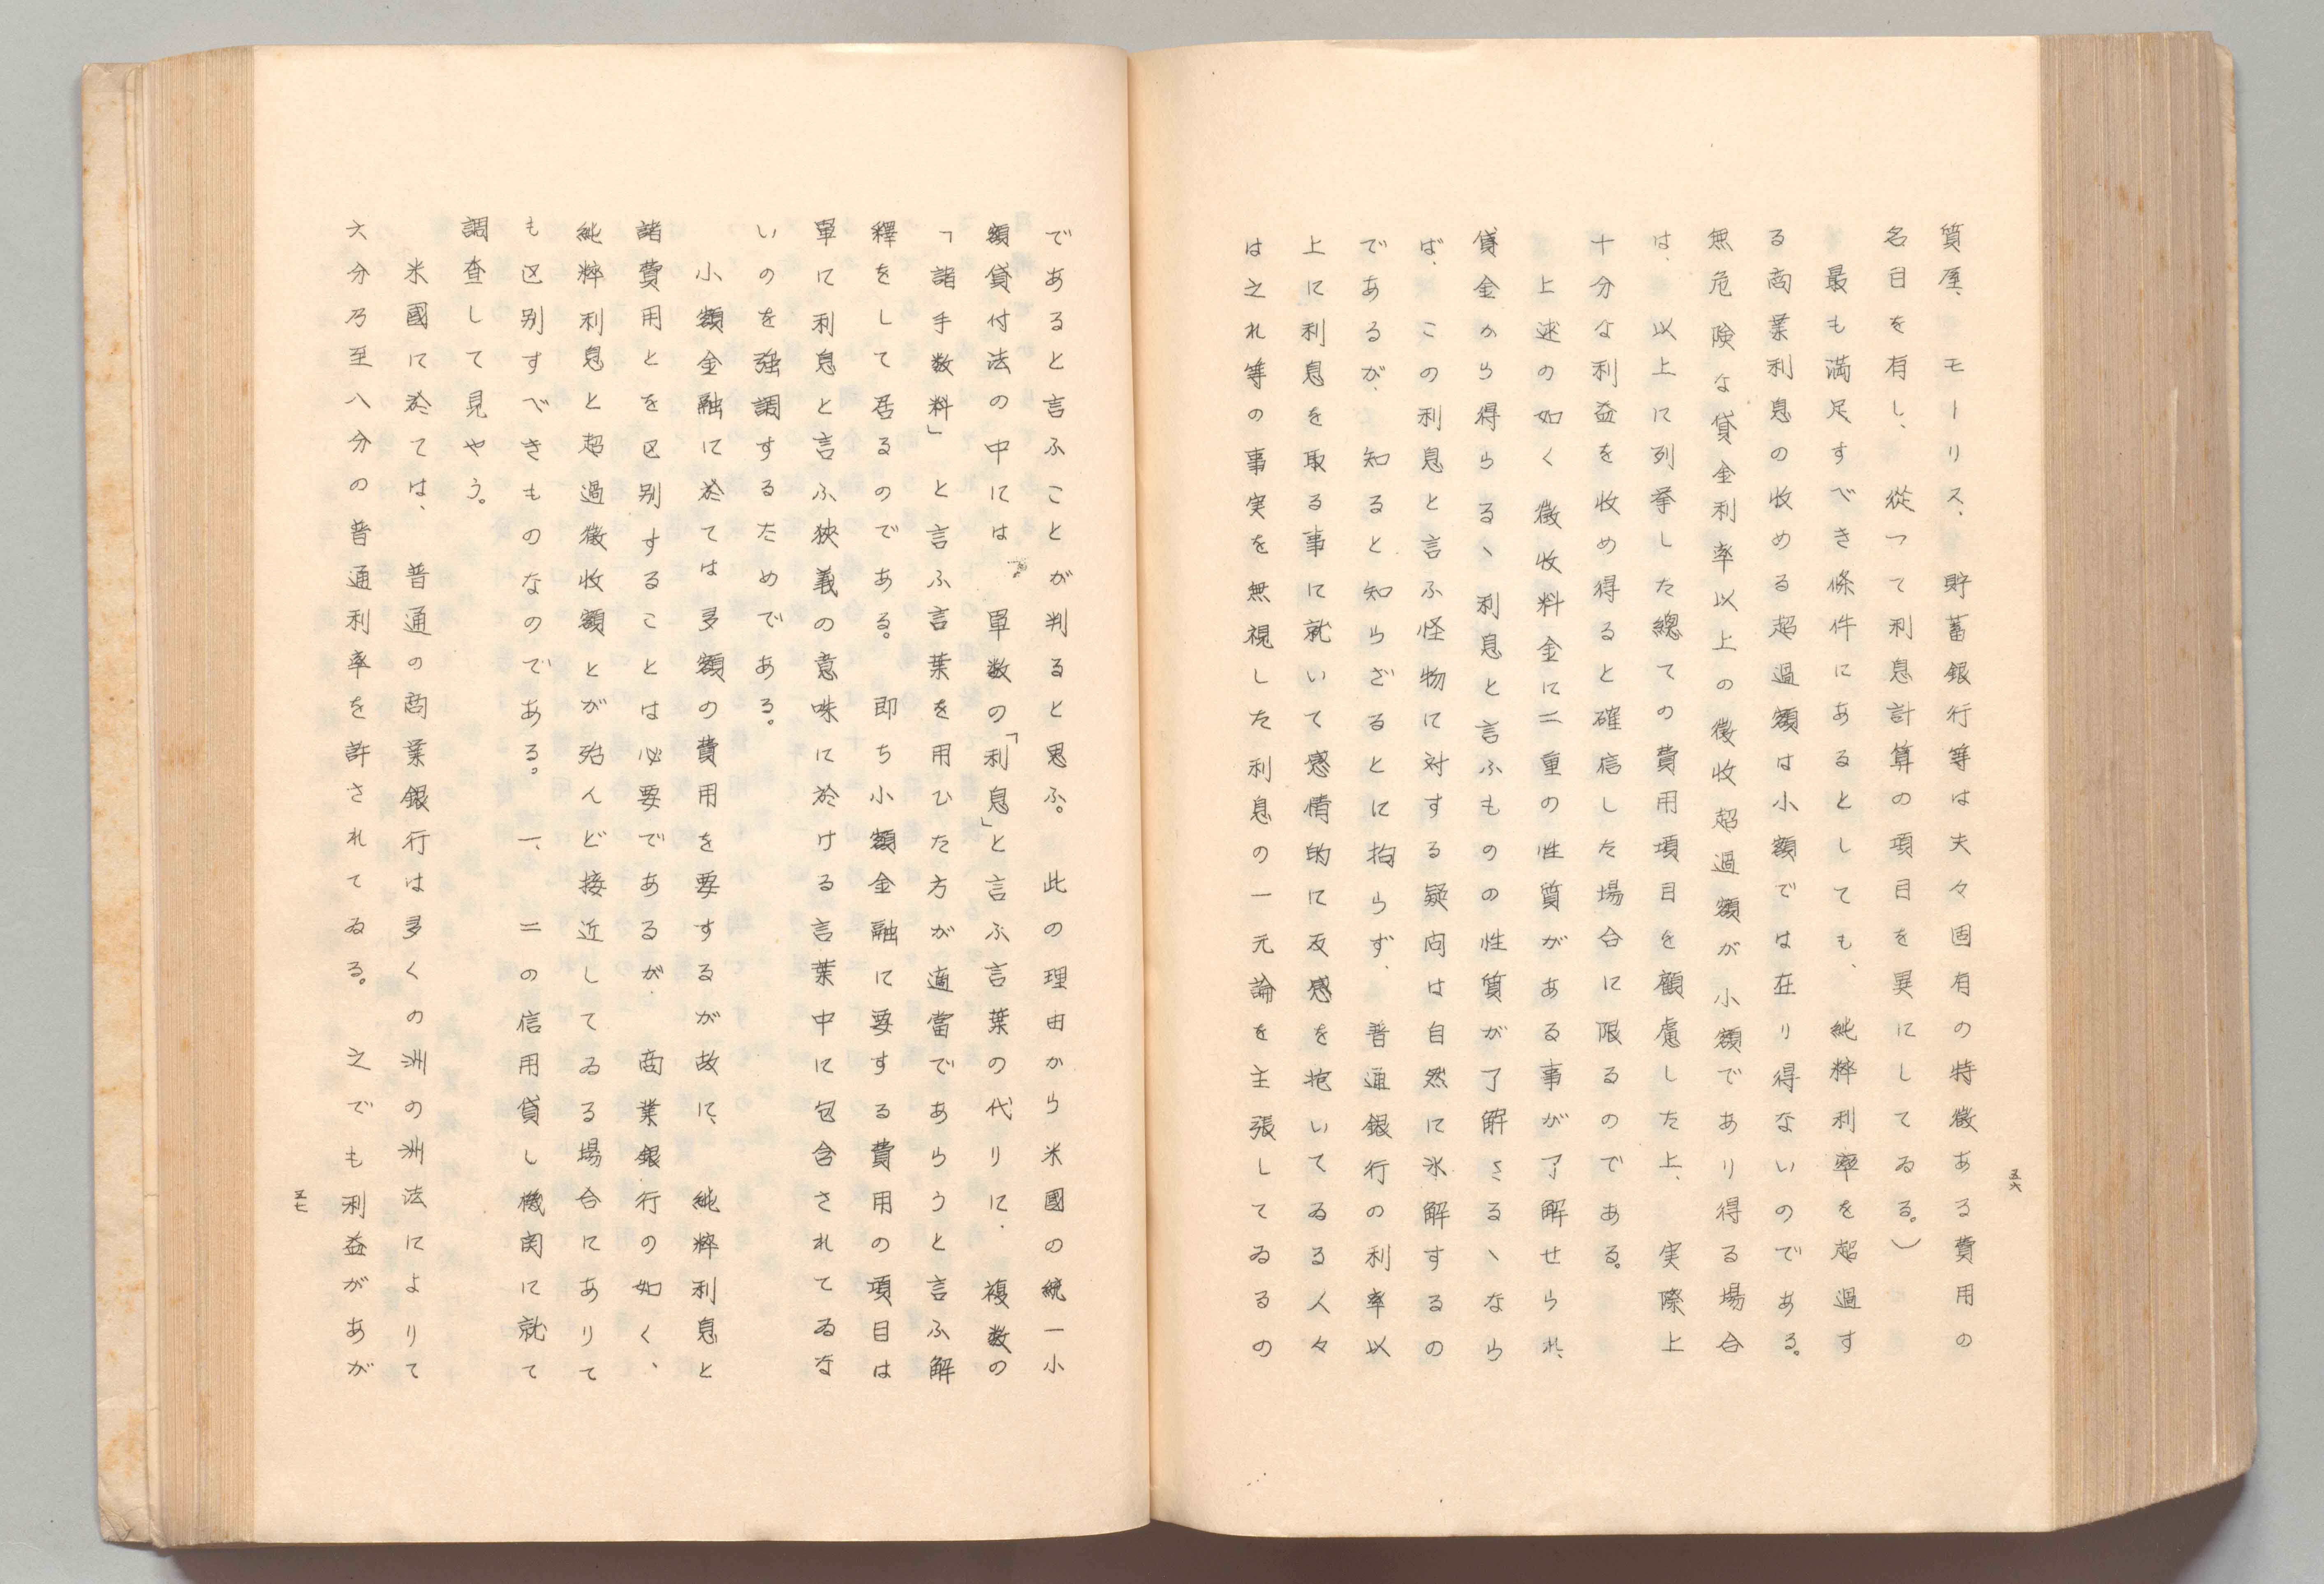 質屋、モーリス、貯蓄銀行等は夫々固有の特徴ある費用の
名目を有し、従つて利息計算の項目を異にしてゐる。）
最も満足すべき條件にあるとしても、純粋利率を超過す
る商業利息の收める超過額は小額では在り得ないのである。
無危険な貸金利率以上の徴收超過額が小額であり得る場合
は、以上に列挙した總ての費用項目を顧慮した上、実際上
十分な利益を收め得ると確信した場合に限るのである。
上述の如く徴收料金に二重の性質がある事が了解せられ、
貸金から得らるヽ利息と言ふものの性質が了解さるヽなら
ば、この利息と言ふ怪物に対する疑问は自然に氷解するの
であるが、知ると知らざるとに拘らず、普通銀行の利率以
上に利息を取る事に就いて感情的に反感を抱いてゐる人々
は之れ等の事実を無視した利息の一元論を主張してゐるの
五六
であると言ふことが判ると思ふ。此の理由から米國の統一小
額貸付法の中には、單数の「利息」と言ふ言葉の代りに、複数の
「諸手数料」と言ふ言葉を用ひた方が適當であらうと言ふ解
釋をして居るのである。即ち小額金融に要する費用の項目は
單に利息と言ふ狹義の意味に於ける言葉中に包含されてゐな
いのを強調するためである。
小額金融に於ては多額の費用を要するが故に、純粋利息と
諸費用とを区别することは必要であるが、商業銀行の如く、
純粋利息と超過徴收額とが殆んど接近してゐる場合にありて
も区别すべきものなのである。一、二の信用貸し機関に就て
調査して見やう。
米國に於ては、普通の商業銀行は多くの洲の洲法によりて
六分乃至八分の普通利率を許されてゐる。之でも利益があが
五七